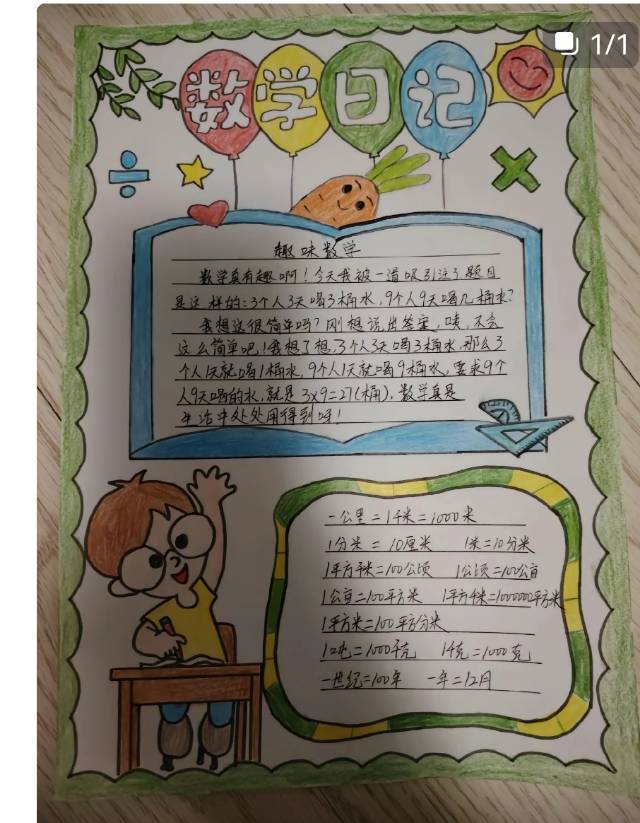 1/1
数学日记
趣味数学
数学真有趣啊！今天我被一道吸引住了题目
是这样的：3个人3天喝3桶水，9个人9天喝几桶水？
我想这很简单吗？刚想说出答案，咦，不会
这么简单吧！我想了想，3个人3天喝3桶水，那么3
个人1天就喝1桶水，9个人1天就喝9桶水，要求9个
人9天喝的水，就是3×9=27(桶)，数学真是
生活中处处用得到呀！
一公里=1千米=1000米
1分米=10厘米 1米=10分米
1平方千米=100公顷 1公顷=100公亩
1公亩=100平方米 1平方千米=1000000平方米
1平方米=100平方分米
1吨=1000千克 1千克=1000克
一世纪=100年 一年=12月